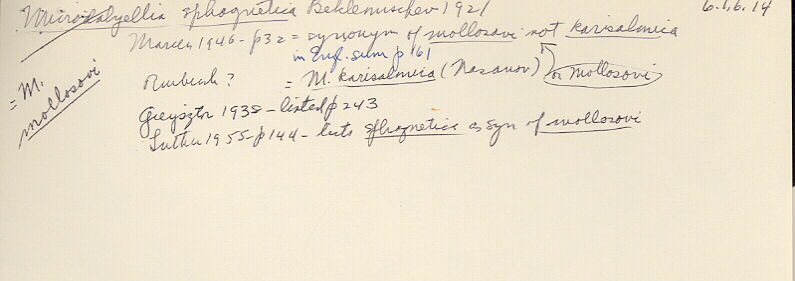 Microdalyellia sphagnetica Beklemischev 1921 6.46.14
Marcus 1946 - p 32 = synonym of mollosovi not karisalmica
in Engl. sum p 161
= M. mollosovi
? = M. karisalmica (Nasanov) or mollosovi
Gieysztor 1938 - listed p 243
Luther 1955 - p 144 - lists sphagnetica as syn of mollosovi